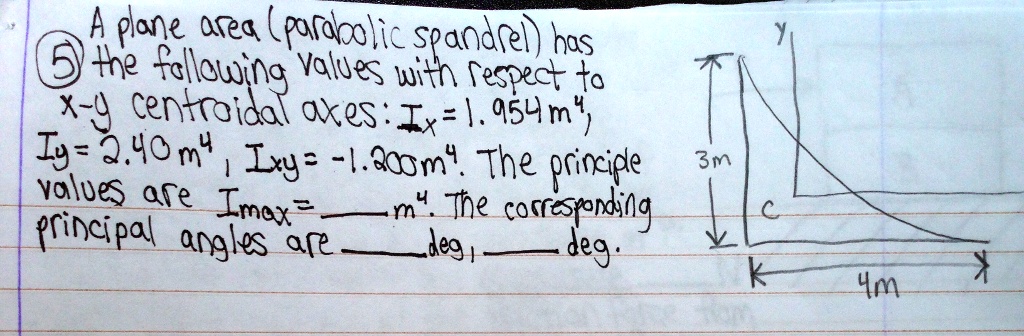 A plane area (parabolic spandrel) has
5 the following values with respect to
x-y centroidal axes: Ix = 1.954 m⁴,
Iy = 2.40 m⁴, Ixy = -1.200m⁴. The principle
values are Imax = ____ m⁴. The corresponding
principal angles are ____ deg, ____ deg.
y
3m
C
4m